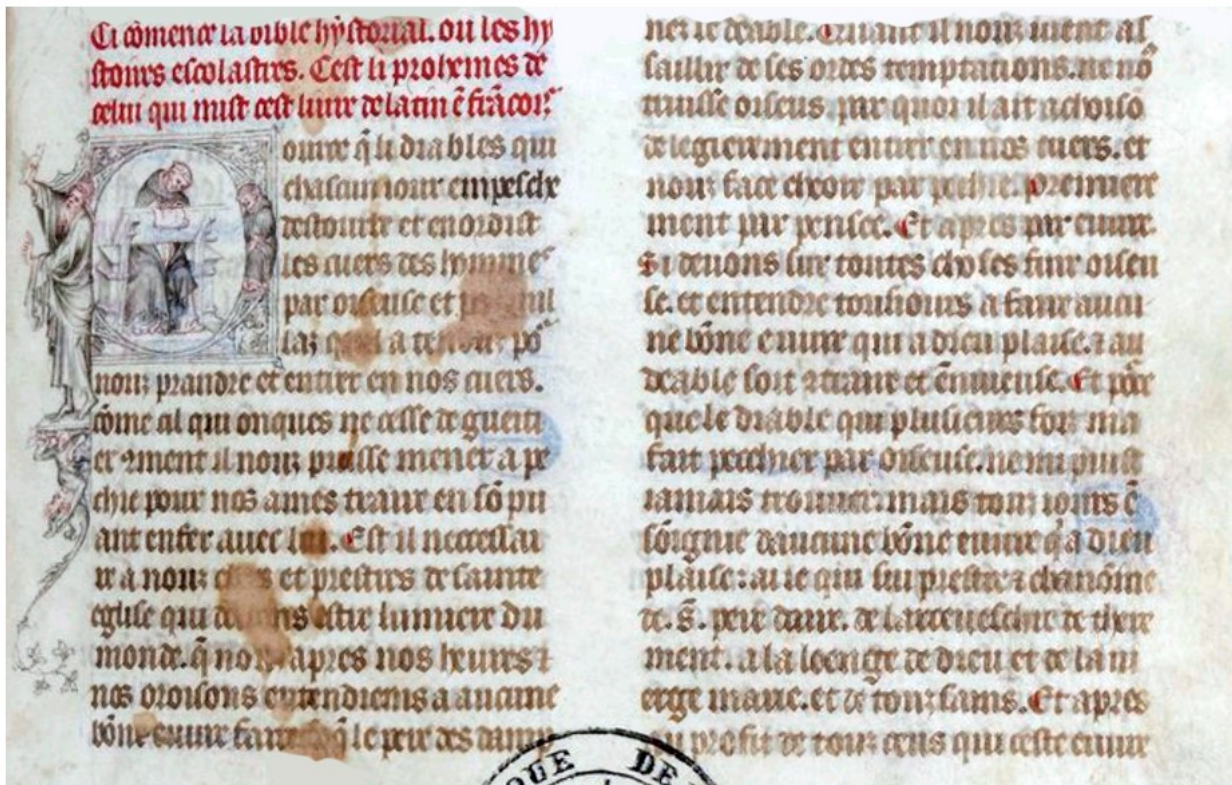 Ci cōmence la bible hystorial. ou les hy
stoires escolastres. Cest li prohemes de
celui qui mist cest liure de latin ē frācois
Pource q̄ li diables qui
chascun iour empesche
destourbe et enordist
les cuers des hommes
par oiseuse et
laz a po²
nouz prandre et entrer en nos cuers.
cōme cil qui onques ne cesse de gueti
er ꝯment il nouz puisse mener a pe
chie pour nos ames traire en sō pu
ant enfer auec lui. Est il necessai
re a nouz clers et prestres de sainte
eglise qui deuons estre lumiere du
monde. q̄ nouz apres nos heures ⁊
nos oroisons entendiens a aucune
bōne euure faire q̄ le
nez le deable. Quant il nouz uient as
saillir de ses ordes temptations. ne no᷒
truisse oiseus. par quoi il ait achoiso
de legierement entrer en nos cuers. et
nouz face cheoir par pechie. premiere
ment par pensee. Et apres par euure.
Si deuons sur toutes choses fuir oiseu
se. et entendre touiours a faire aucu
ne bōne euure qui a dieu plaise. ⁊ au
deable soit ꝯtraire et ēnuieuse. Et
que le diable qui plusieurs foiz ma
fait pechier par oiseuse. ne mi puist
iamais trouuer. mais touz iours ē
sōignie daucune bōne euure q̄ a dieu
plaise: ai ie qui sui prestre ⁊ chanōine
de .S. pere daire. de la de there
ment. a la loenge de dieu et de la ui
erge marie. et de touz sains. Et apres
au profit de touz ceus qui ceste euure
QUE DE